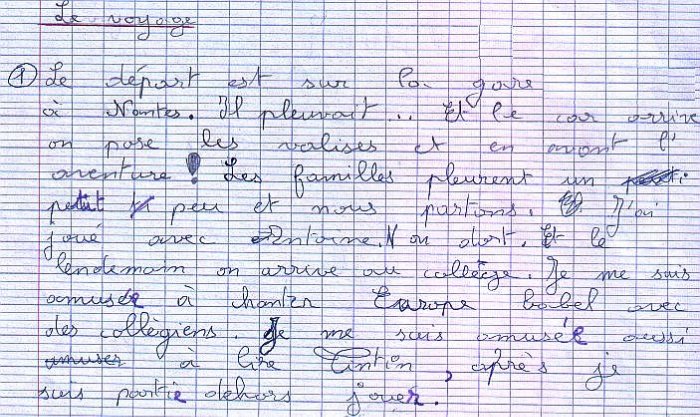 Le voyage
① Le départ est sur la gare
à Nantes. Il pleuvait... Et le car arrive
on pose les valises et en avant l'
aventure ! Les familles pleurent un
petit peu et nous partons. J'ai
joué avec Antoine. On dort. Et le
lendemain on arrive au collège. Je me suis
amusée à chanter Europe babel avec
des collègiens. Je me suis amusée aussi
amuser à lire Tintin, après je
suis partie dehors jouer.